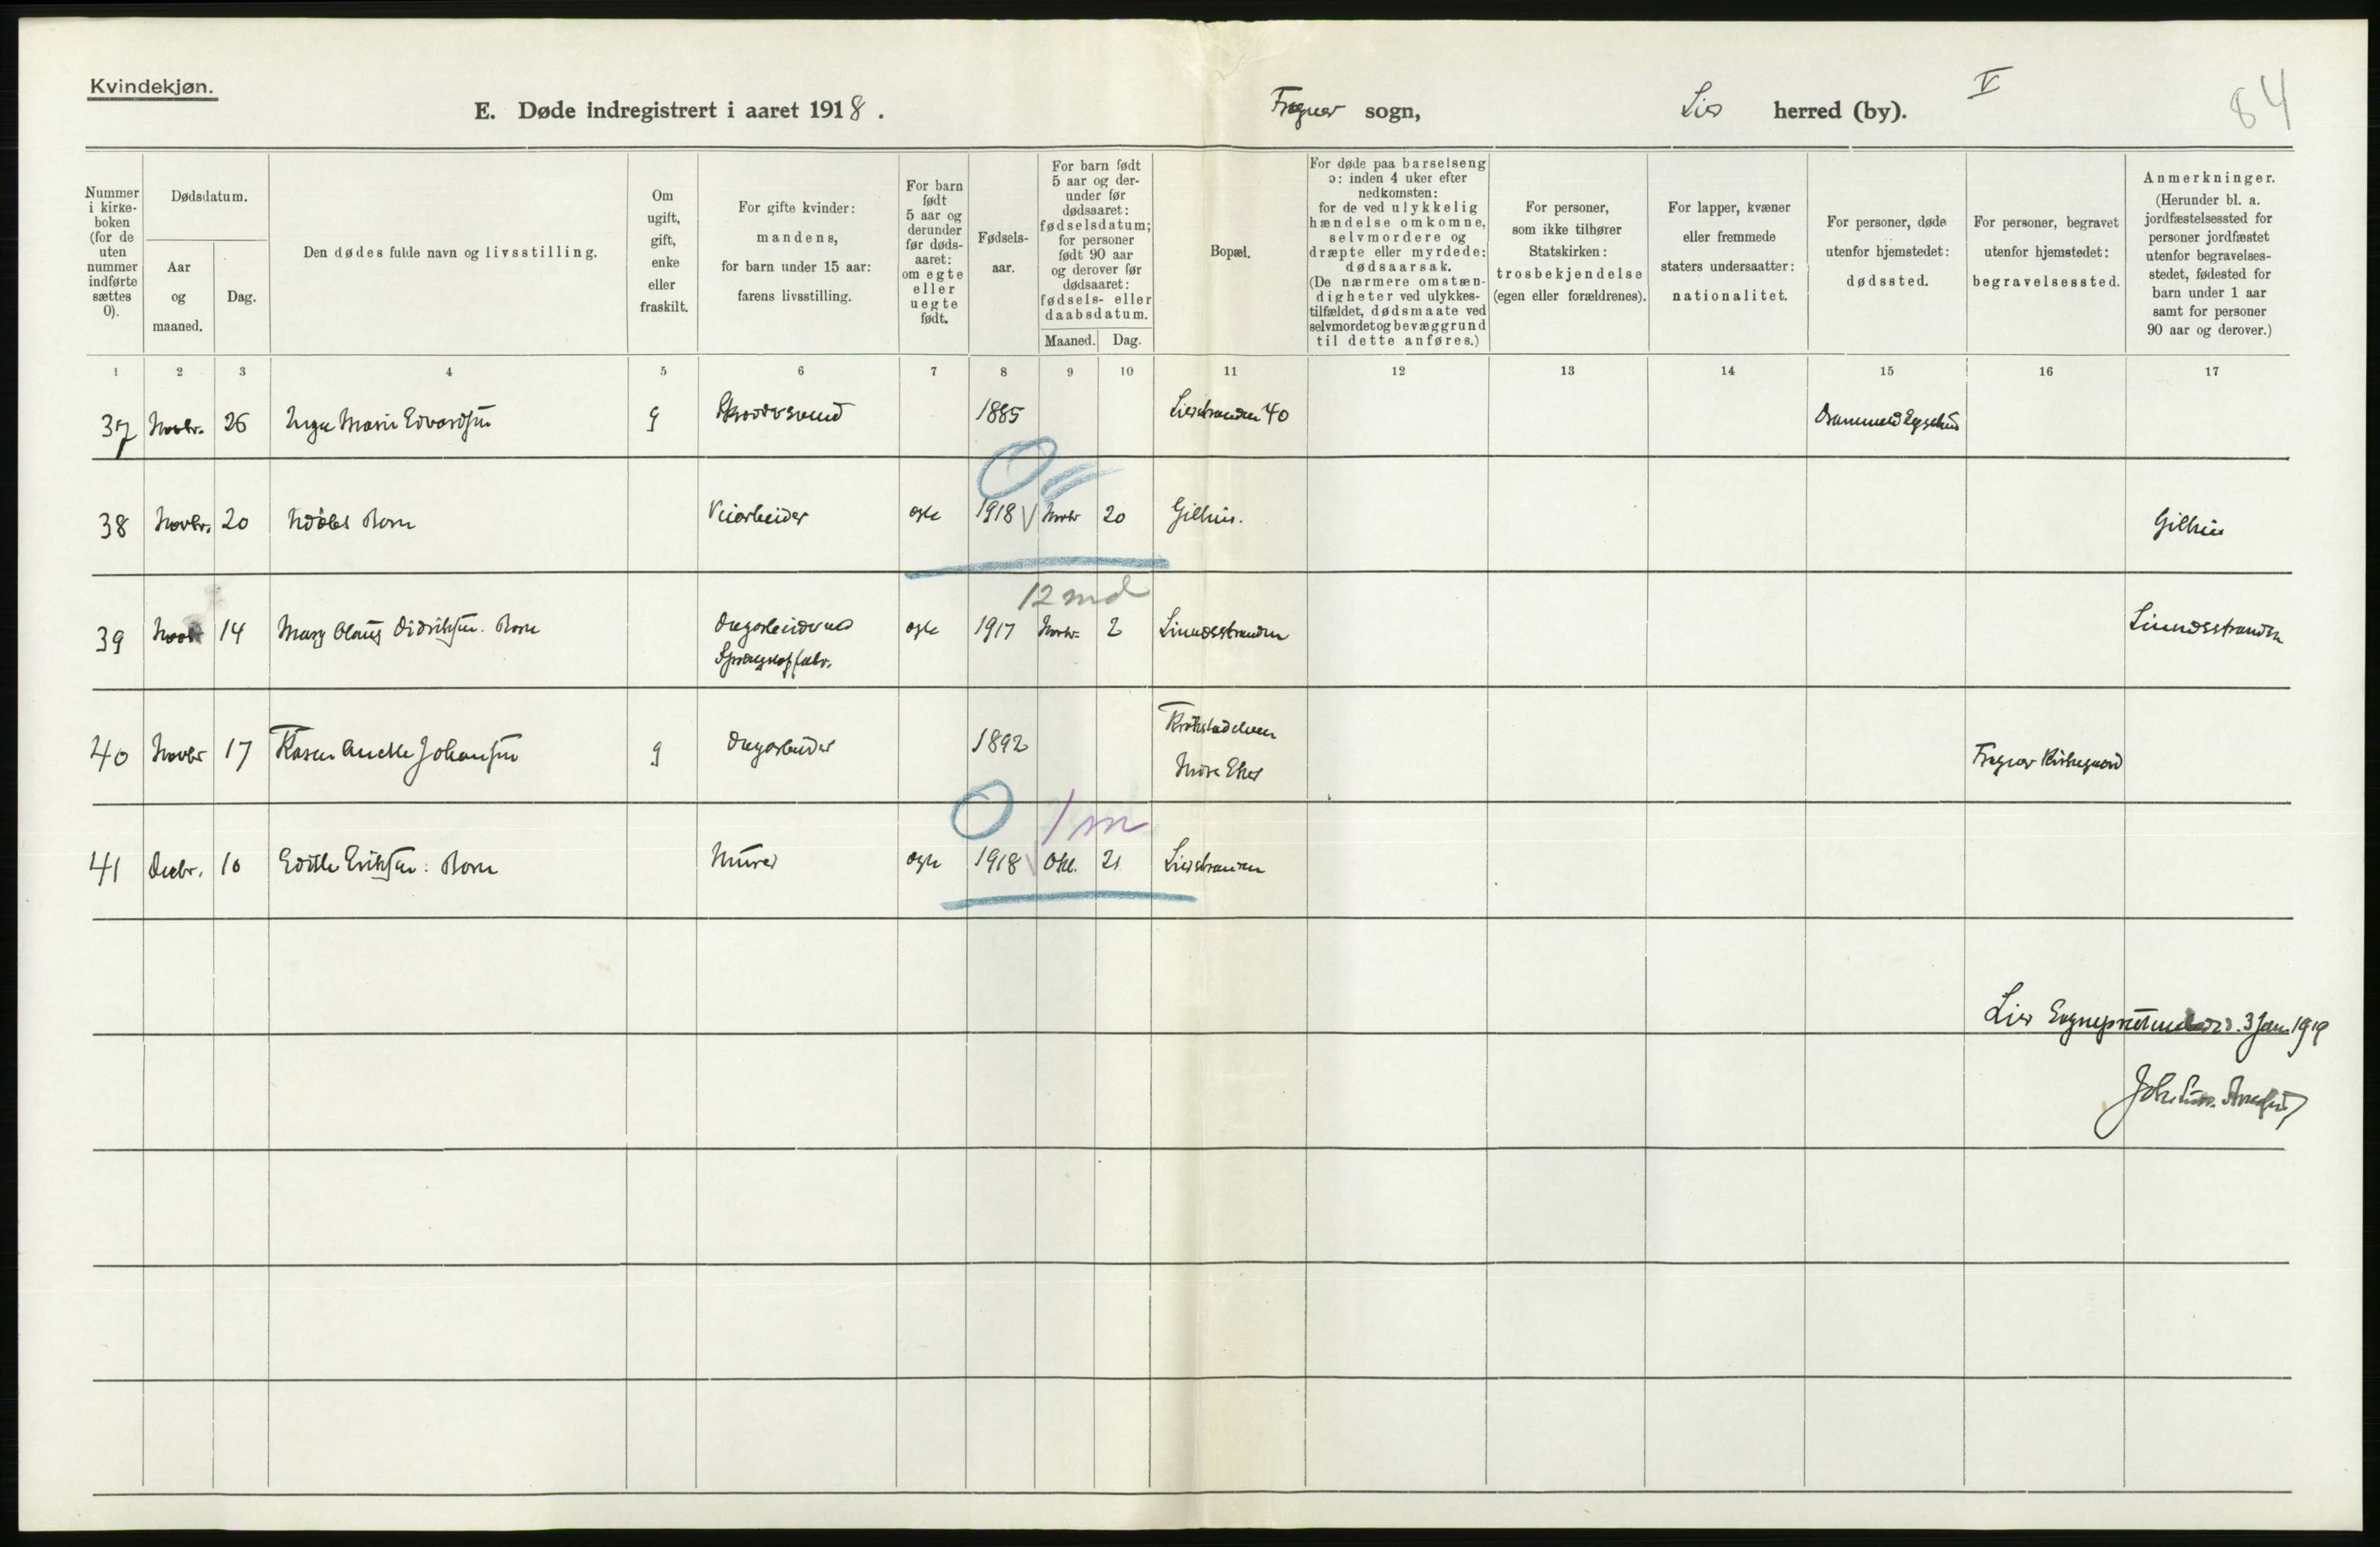 Kvindekjøn.
E. Døde indregistrert i aaret 1918.
Frogner sogn,
Lier herred (by).
V
84
Nummer i kirkeboken (for de uten nummer indførte sættes 0).
Dødsdatum.
Aar og maaned.
Dag.
Den dødes fulde navn og livsstilling.
Om ugift, gift, enke eller fraskilt.
For gifte kvinder: mandens, for barn under 15 aar: farens livsstilling.
For barn født 5 aar og derunder før dødsaaret: om egte eller uegte født.
Fødselsaar.
For barn født 5 aar og derunder før dødsaaret: fødselsdatum; for personer født 90 aar og derover før dødsaaret: fødsels- eller daabsdatum.
Maaned.
Dag.
Bopæl.
For døde paa barselseng ɔ: inden 4 uker efter nedkomsten: for de ved ulykkelig hændelse omkomne, selvmordere og dræpte eller myrdede: dødsaarsak. (De nærmere omstændigheter ved ulykkestilfældet, dødsmaate ved selvmordet og bevæggrund til dette anføres.)
For personer, som ikke tilhører Statskirken: trosbekjendelse (egen eller forældrenes).
For lapper, kvæner eller fremmede staters undersaatter: nationalitet.
For personer, døde utenfor hjemstedet: dødssted.
For personer, begravet utenfor hjemstedet: begravelsessted.
Anmerkninger. (Herunder bl. a. jordfæstelsessted for personer jordfæstet utenfor begravelsesstedet, fødested for barn under 1 aar samt for personer 90 aar og derover.)
1 2 3 4 5 6 7 8 9 10 11 12 13 14 15 16 17
37 Novbr. 26 Inga Marie Edvardsen g 1885 Lierstranden 40
38 Novbr. 20 Udøbt Barn Veiarbeider egte 1918 Novbr 20 Gilhus. Gilhus
12 md
39 Novbr 14 Mary Olaug Didriksen. Barn Dagarbeider ved egte 1917 Novbr. 2 Linnesstranden Linnesstranden
Sprængstoffabr.
40 Novbr 17 Karen Anette Johansen g Dagarbeider 1892 Krokstadelven Frogner Kirkegaard
Nedre Eker
0 1 m
41 Decbr. 10 Edith Eriksen: Barn Murer egte 1918 Okt. 21 Lierstranden
Lier Sogneprestembede d. 3 Jan 1919